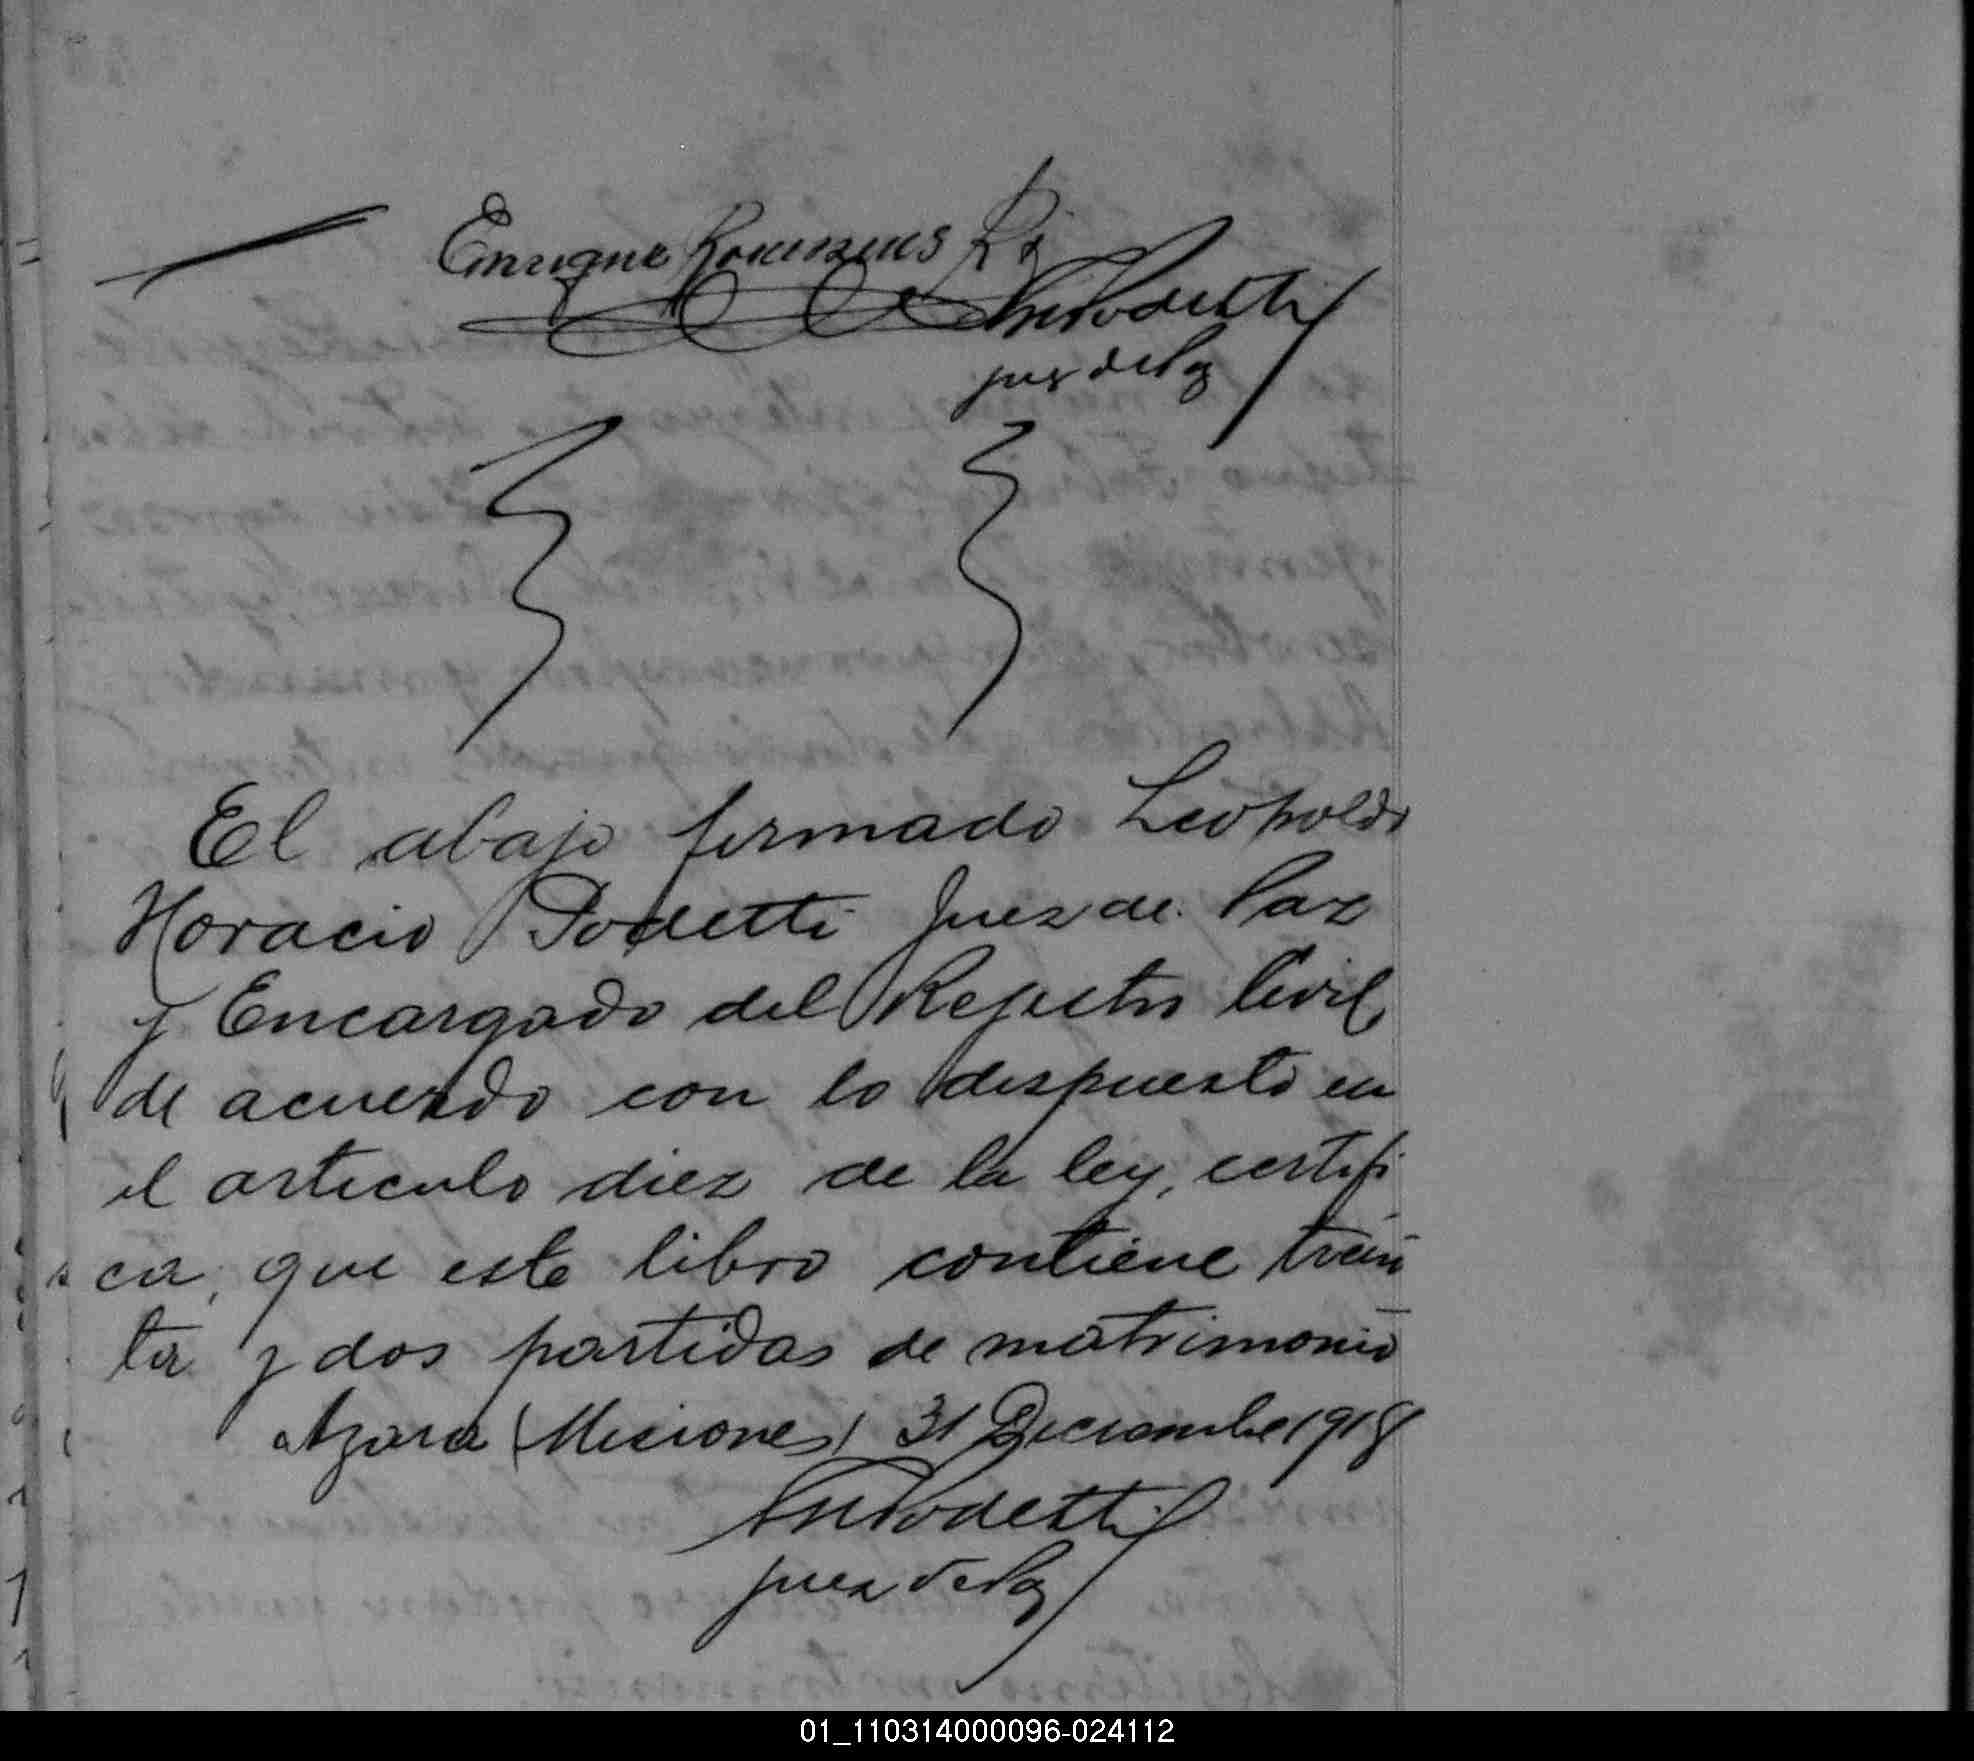 Enrique
Podetti
juez de Paz
El abajo firmado Leopoldo
Horacio Podetti Juez de Paz
y Encargado del Rejistro Civil,
de acuerdo con lo dispuesto en
el articulo diez de la ley, certifi
ca, que este libro contiene trein
ta y dos partidas de matrimonio
Azara (Misiones) 31 Diciembre 1918
Podetti
juez de Paz
01_110314000096-024112